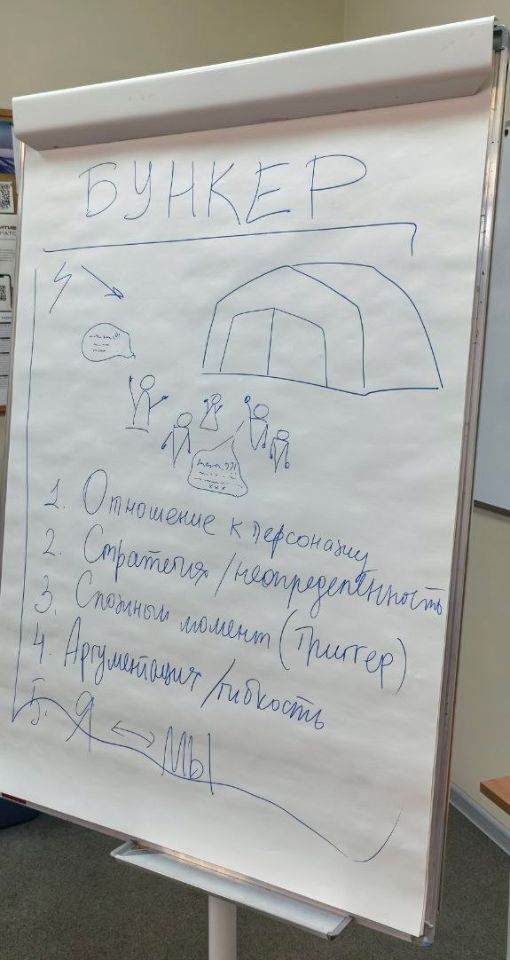 БУНКЕР
1. Отношение к персонажу
2. Стратегия / неопределённость
3. Сложный момент (Триггер)
4. Аргументация / гибкость
5. Я ↔ МЫ